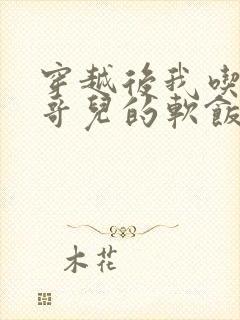 穿越後我喫
哥兒的軟飯
木花